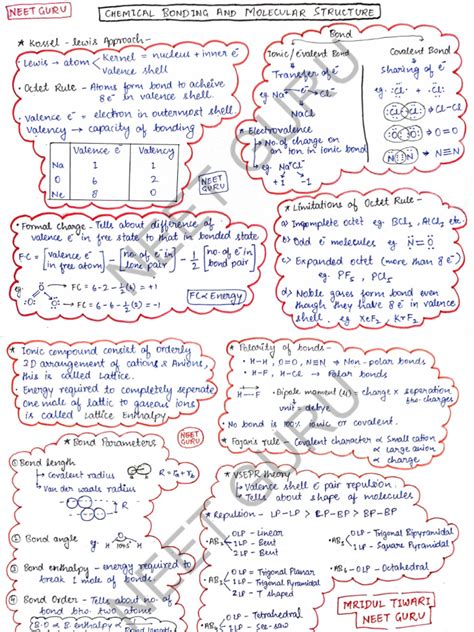 NEET GURU
CHEMICAL BONDING AND MOLECULAR STRUCTURE
★ Kossel - lewis Approach-
• Lewis → atom
Kernel = nucleus + inner e⁻
valence shell
• Octet Rule - Atoms form bond to acheive
8 e⁻ in valence shell.
• valence e⁻ = electron in outermost shell.
valency → capacity of bonding
Valence e⁻ Valency
Na 1 1
O 6 2
Ne 8 0
NEET
GURU
Bond
Ionic / Covalent Bond
Transfer of e⁻
eg
NaCl
Covalent Bond
sharing of e⁻
eg :Cl· + ·Cl:
Cl-Cl
O=O
N≡N
★ Electrovalence
↳ No. of charge on
an ion in ionic bond
eg Na⁺Cl⁻
+1 -1
• Formal Charge - Tells about difference of
valence e⁻ in free state to that in bonded state
FC = [valence e⁻ in free atom] - [no. of e⁻ in lone pair] - 1/2 [no. of e⁻ in bond pair]
eg:
FC = 6-2-½(6) = +1
FC = 6-6-½(2) = -1
FC ∝ Energy
★ Limitations of Octet Rule -
a) Incomplete octet eg. BCl₃, AlCl₃ etc
b) Odd e⁻ molecules eg. N=O
c) Expanded octet (more than 8 e⁻)
eg- PF₅, PCl₅
d) Noble gases form bond even
though they have 8 e⁻ in valence
shell. eg. XeF₂, KrF₂
★ Ionic compound consist of orderly
3D arrangement of cations & Anions,
this is called lattice.
• Energy required to completely seperate
one mole of lattic to gaseous ions
is called Lattice Enthalpy
★ Polarity of bonds-
• H-H, O=O, N≡N → Non-polar bonds
• H-F, H-Cl → Polar bonds
H—F
• Dipole moment (μ) = charge × seperation
btw. charges
unit - debye
• No bond is 100% ionic or covalent.
★ Fajan's rule - Covalent character ∝ Small cation
∝ large anion
∝ charge
★ Bond Parameters
NEET
GURU
① Bond length
↳ Covalent radius
R = rₐ + r_b
↳ Van der waals radius
R
② Bond angle
eg H O H
104.5°
③ Bond enthalpy - energy required to
break 1 mole of bonds
④ Bond Order - Tells about no. of
bond btw. two atoms
B.O ∝ B. Enthalpy ∝
★ VSEPR theory
↳ Valence shell e⁻ pair repulsion.
↳ Tells about shape of molecules
• Repulsion - LP-LP > LP-BP > BP-BP
• AB₂
0LP - Linear
1LP - Bent
2LP - Bent
• AB₃
0LP - Trigonal Planar
1LP - Trigonal Pyramidal
2LP - T shaped
0LP - Tetrahedral
1LP - See-saw
• AB₅
0LP - Trigonal Bipyramidal
1LP - Square Pyramidal
• AB₆
0LP - Octahedral
MRIDUL TIWARI
NEET GURU
NEET GURU
NEET GURU